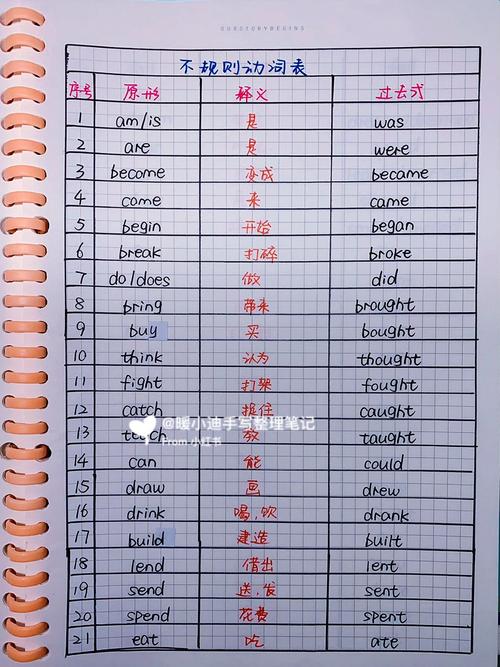 OURSTORYBEGINS
不规则动词表
序号 原形 释义 过去式
1 am/is 是 was
2 are 是 were
3 become 变成 became
4 come 来 came
5 begin 开始 began
6 break 打碎 broke
7 do/does 做 did
8 bring 带来 brought
9 buy 买 bought
10 think 认为 thought
11 fight 打架 fought
12 catch 抓住 caught
@暖小迪手写整理笔记
13 teach 教 taught
From 小红书
14 can 能 could
15 draw 画 drew
16 drink 喝,饮 drank
17 build 建造 built
18 lend 借出 lent
19 send 送,发 sent
20 spend 花费 spent
21 eat 吃 ate